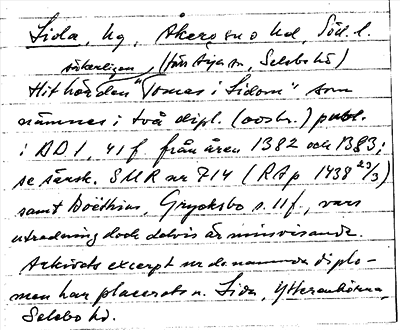 Sida, hg, Åkers sn o hd, Söd. l.
säkerligen, (Hör. Aija sn, Selebo hd)
Hit hör den "Tomas i Sidom" som
nämnes i två dipl. (oostr.) publ.
i DD 1, 41 f. från åren 1382 och 1383;
se särsk. SMR nr 714 (RAp 1438 23/3)
samt Boëthius, Gryoksbo s. 11 f., vars
utredning dock delvis är missvisande.
Arkivets excerpt ur de nämnda diplo-
men har placerats u. Sida, Ytterenhörna,
Selebo hd.